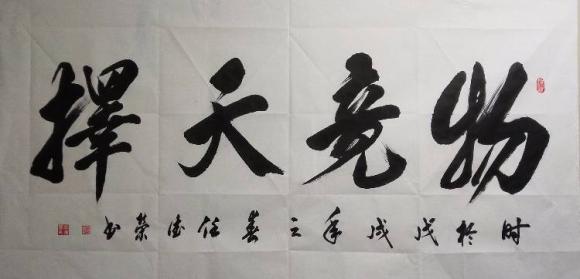 物竞天擇
时於戊戌年之春任德荣书